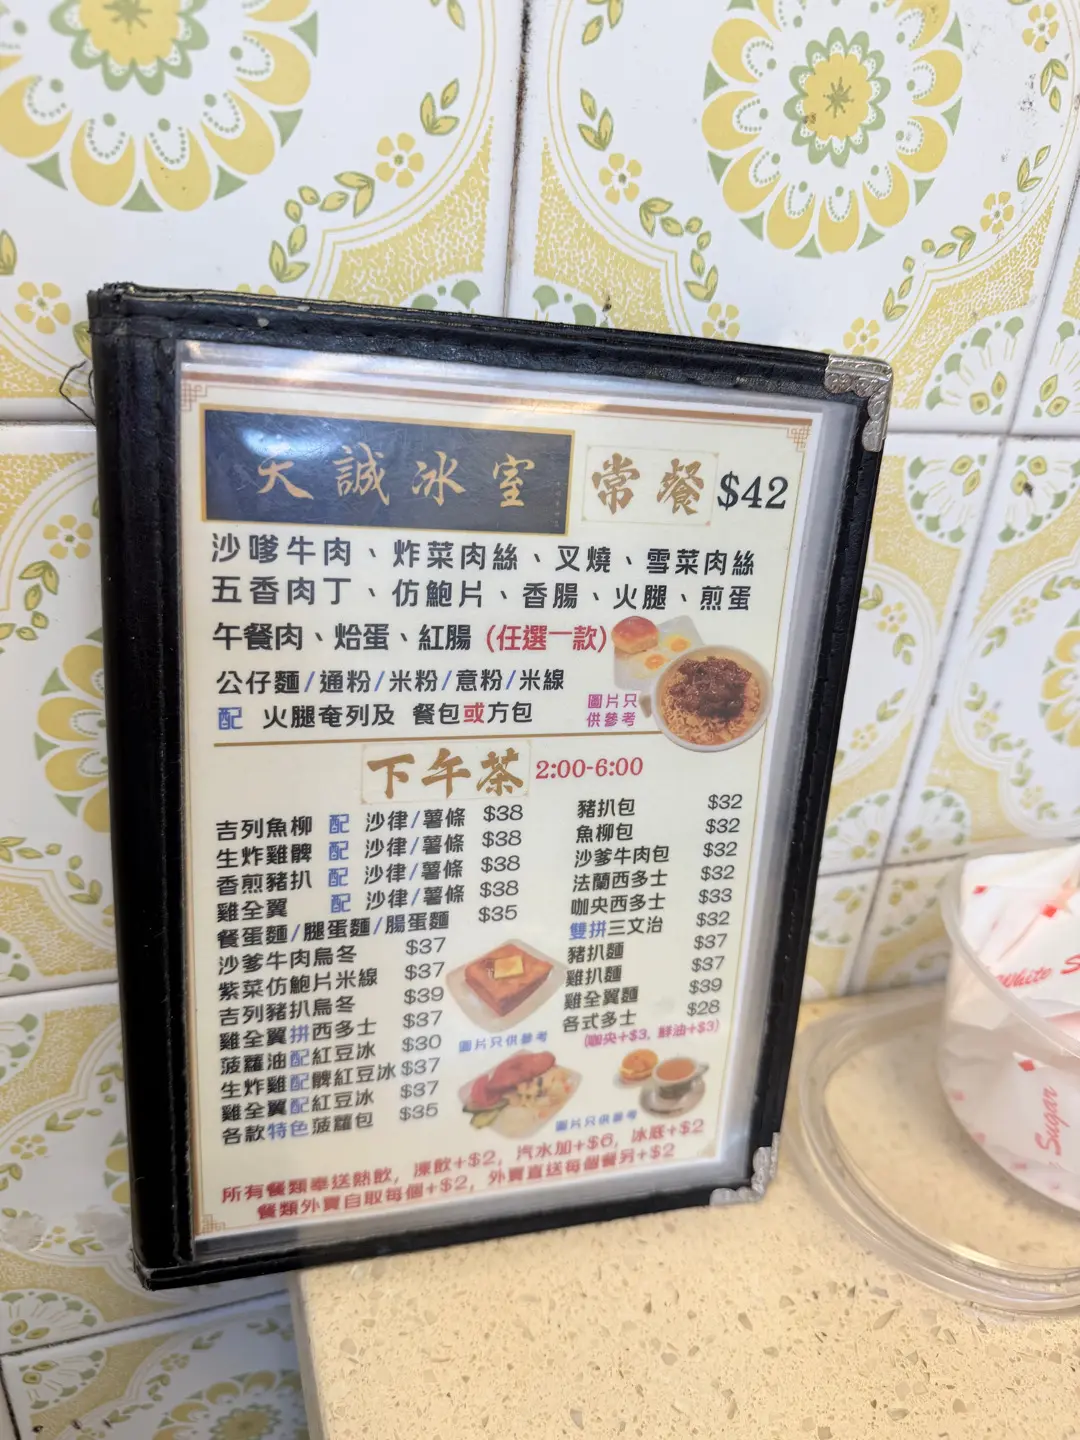 天誠冰室 常餐 $42
沙嗲牛肉、炸菜肉絲、叉燒、雪菜肉絲
五香肉丁、仿鮑片、香腸、火腿、煎蛋
午餐肉、烚蛋、紅腸 (任選一款)
公仔麵/通粉/米粉/意粉/米線
配 火腿奄列及 餐包或方包
圖片只
供參考
下午茶 2:00-6:00
吉列魚柳 配 沙律/薯條 $38
生炸雞髀 配 沙律/薯條 $38
香煎豬扒 配 沙律/薯條 $38
雞全翼 配 沙律/薯條 $38
餐蛋麵/腿蛋麵/腸蛋麵 $35
沙爹牛肉烏冬 $37
紫菜仿鮑片米線 $37
吉列豬扒烏冬 $39
雞全翼拼西多士 $37
菠蘿油配紅豆冰 $30
生炸雞配髀紅豆冰 $37
雞全翼配紅豆冰 $37
各款特色菠蘿包 $35
豬扒包 $32
魚柳包 $32
沙爹牛肉包 $32
法蘭西多士 $32
咖央西多士 $33
雙拼三文治 $32
豬扒麵 $37
雞扒麵 $37
雞全翼麵 $39
各式多士 $28
(咖央+$3, 鮮油+$3)
圖片只供參考
圖片只供參考
所有餐類奉送熱飲, 凍飲+$2, 汽水加+$6, 冰底+$2
餐類外賣自取每個+$2, 外賣直送每個餐另+$2
White S
Sugar